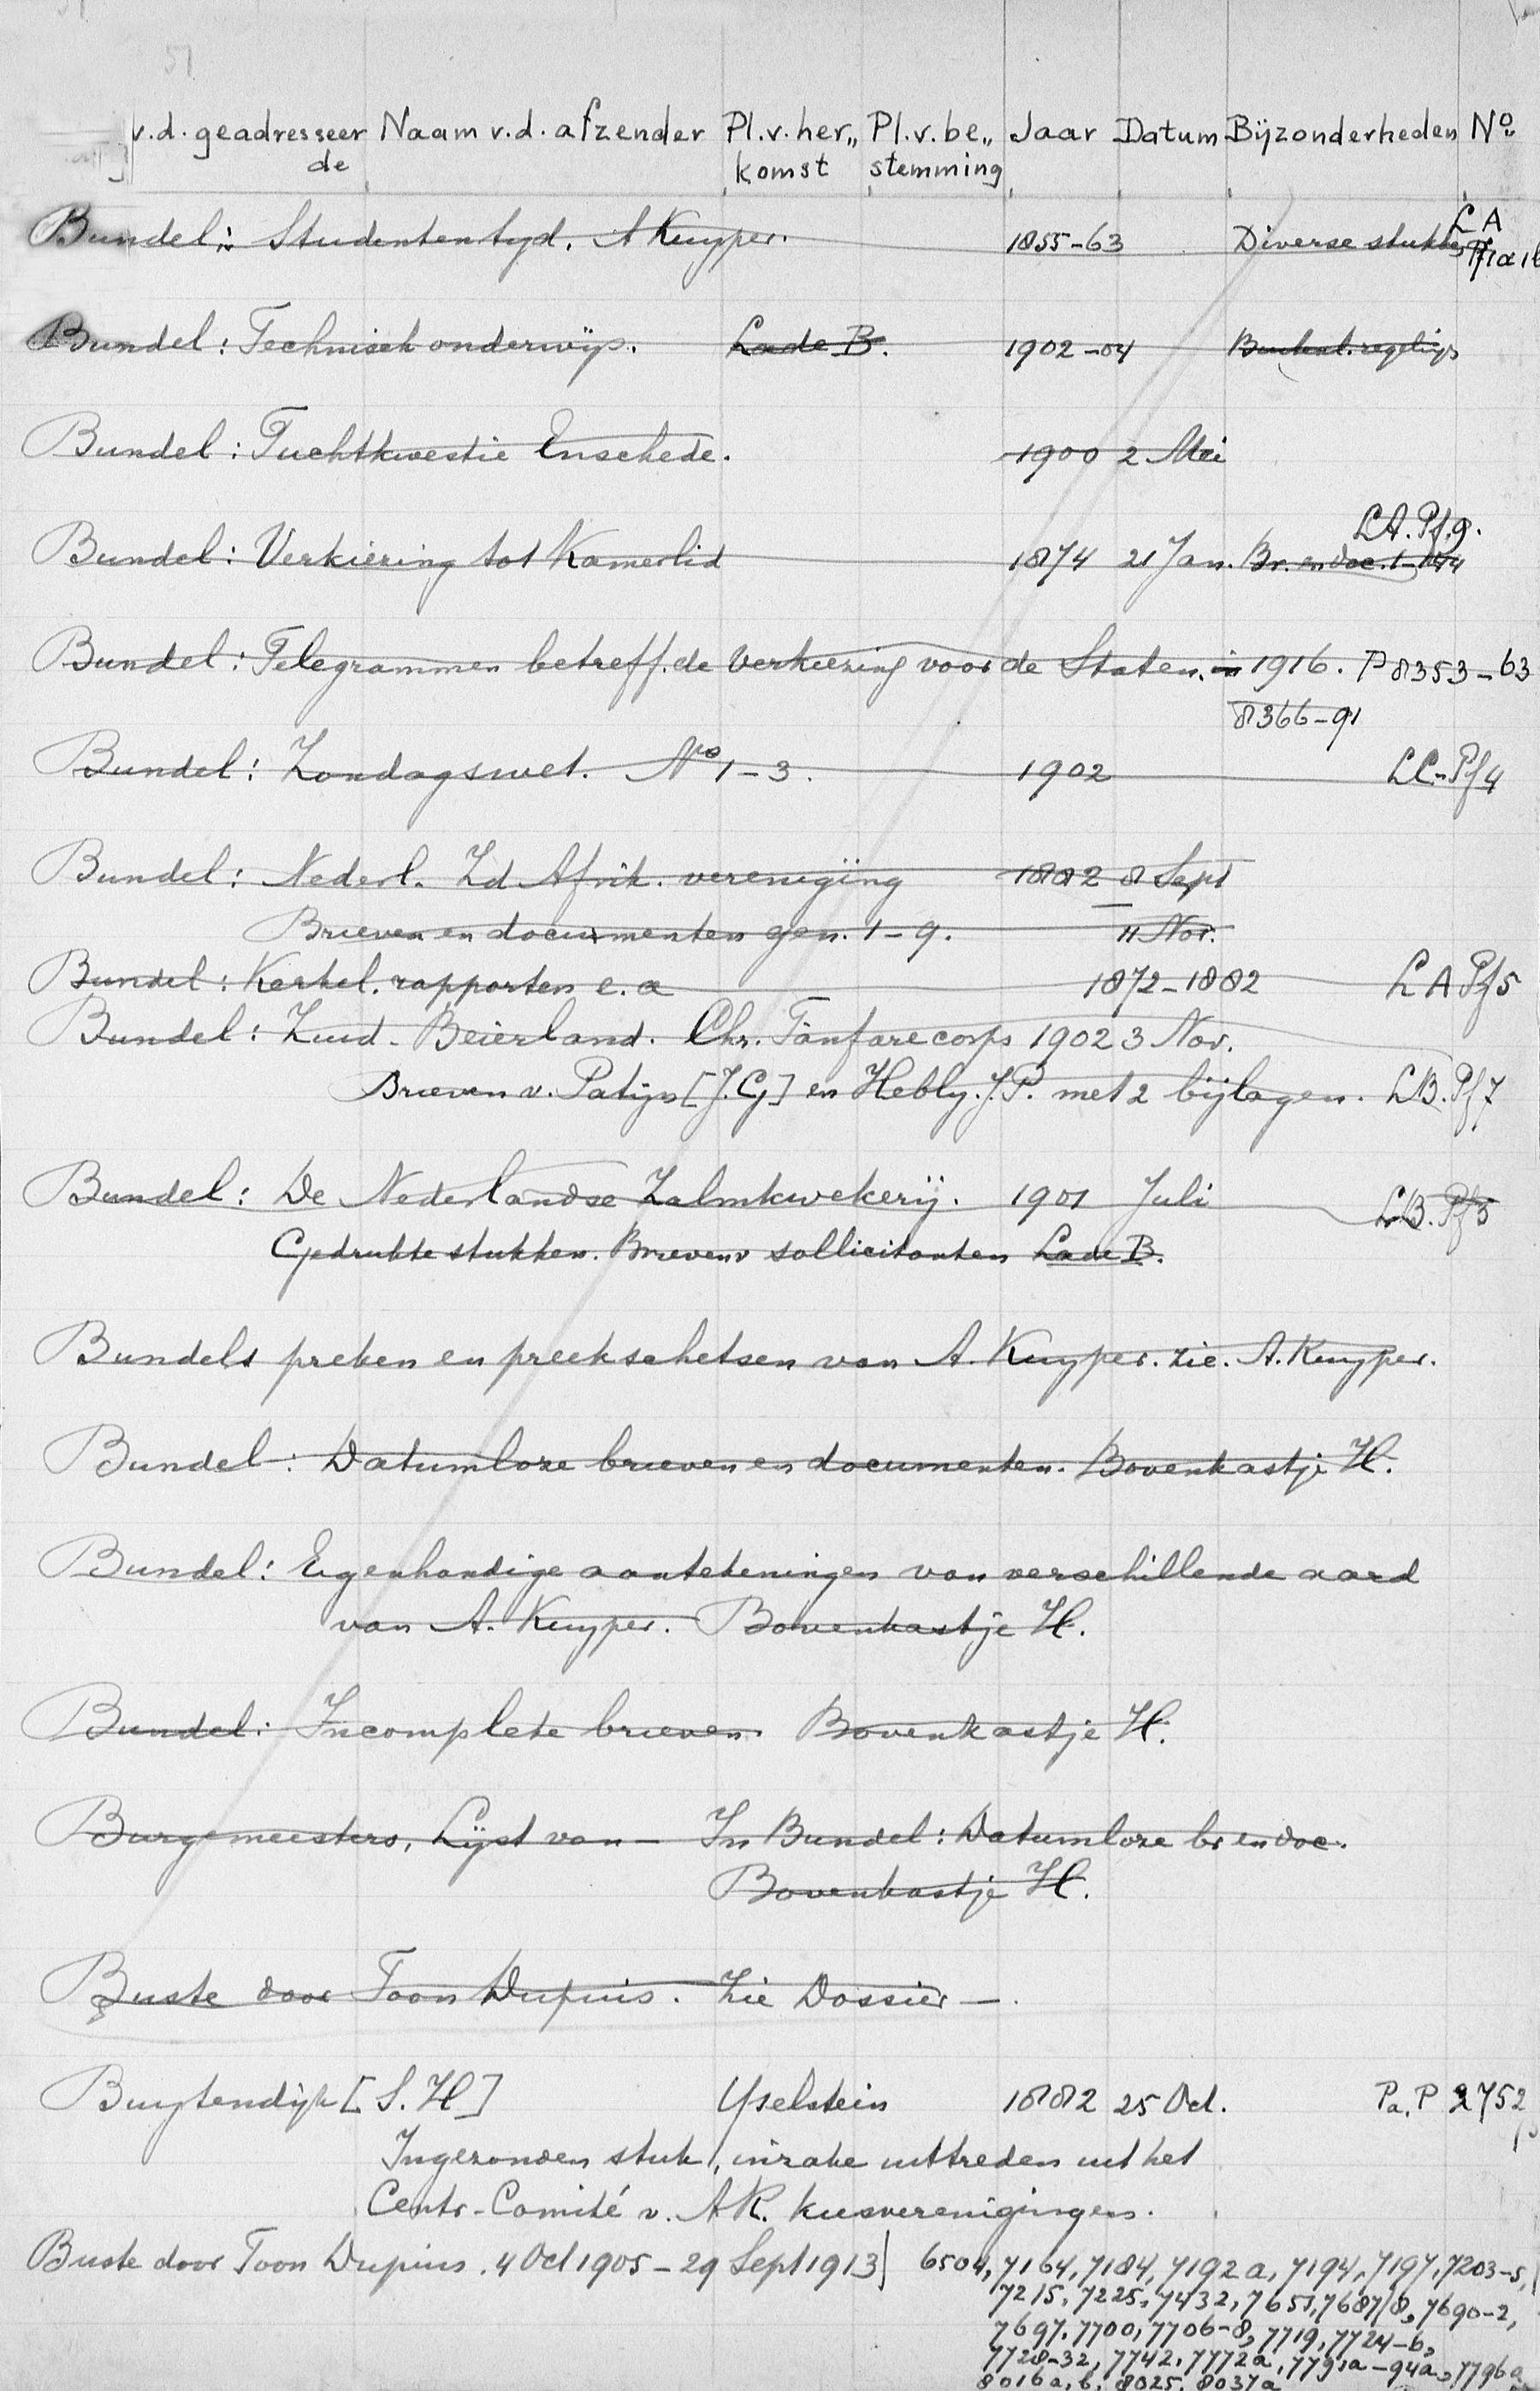 51
v.d. geadresseer Naam v.d. afzender Pl.v.her„ Pl.v.be„ Jaar Datum Bijzonderheden No
de komst stemming
Bundel: Studententyd. A Kuyper. 1855-63 Diverse stukken LA
Pf 1a 1b
Bundel: Technisch onderwijs. Lade B. 1902-04 Buitenl. regeling
Bundel: Tuchtkwestie Enschede. 1900 2 Mei
LA. Pf. 9.
Bundel: Verkiezing tot Kamerlid 1874 21 Jan. Br. en doc. 1-144
Bundel: Telegrammen betreff. de Verkiezing voor de Staten. in 1916. P 8353-63
8366-91
Bundel: Zondagswet. Nos 1-3. 1902 LC-Pf 4
Bundel: Nederl. Zd Afrik. vereniging 1882 8 Sept
Brieven en documenten gen. 1-9. 11 Nov.
Bundel: Kerkel. rapporten e.a 1872-1882 LA Pf 5
Bundel: Zuid-Beierland. Chr. Fanfarecorps 1902 3 Nov.
Brieven v. Patijn [J.G] en Hebly. J.P. met 2 bijlagen. LB. Pf 7
Bundel: De Nederlandse Zalmkwekerij. 1901 Juli LB. Pf 3
Gedrukte stukken. Brieven v sollicitanten Lade B.
Bundels preken en preekschetsen van A. Kuyper. zie. A. Kuyper.
Bundel: Datumloze brieven en documenten. Bovenkastje H.
Bundel: Eigenhandige aantekeningen van verschillende aard
van A. Kuyper. Bovenkastje H.
Bundel: Incomplete brieven. Bovenkastje H.
Burgemeesters, Lijst van — In Bundel: Datumloze br en doc.
Bovenkastje H.
Buste door Toon Dupuis. Zie Dossier —.
Buytendijk [S.H] Yselstein 1882 25 Oct. Pa. P 2752
Ingezonden stuk, inzake uittreden uit het
Centr-Comité v. AR. kiesverenigingen.
Buste door Toon Dupuis. 4 Oct 1905 - 29 Sept 1913] 6504, 7164, 7184, 7192a, 7194, 7197, 7203-5,
7215, 7225, 7432, 7655, 7687/8, 7690-2,
7697, 7700, 7706-8, 7719, 7724-6,
7728-32, 7742, 7772a, 7791a-94a, 7796a
8016a, b, 8025, 8037a